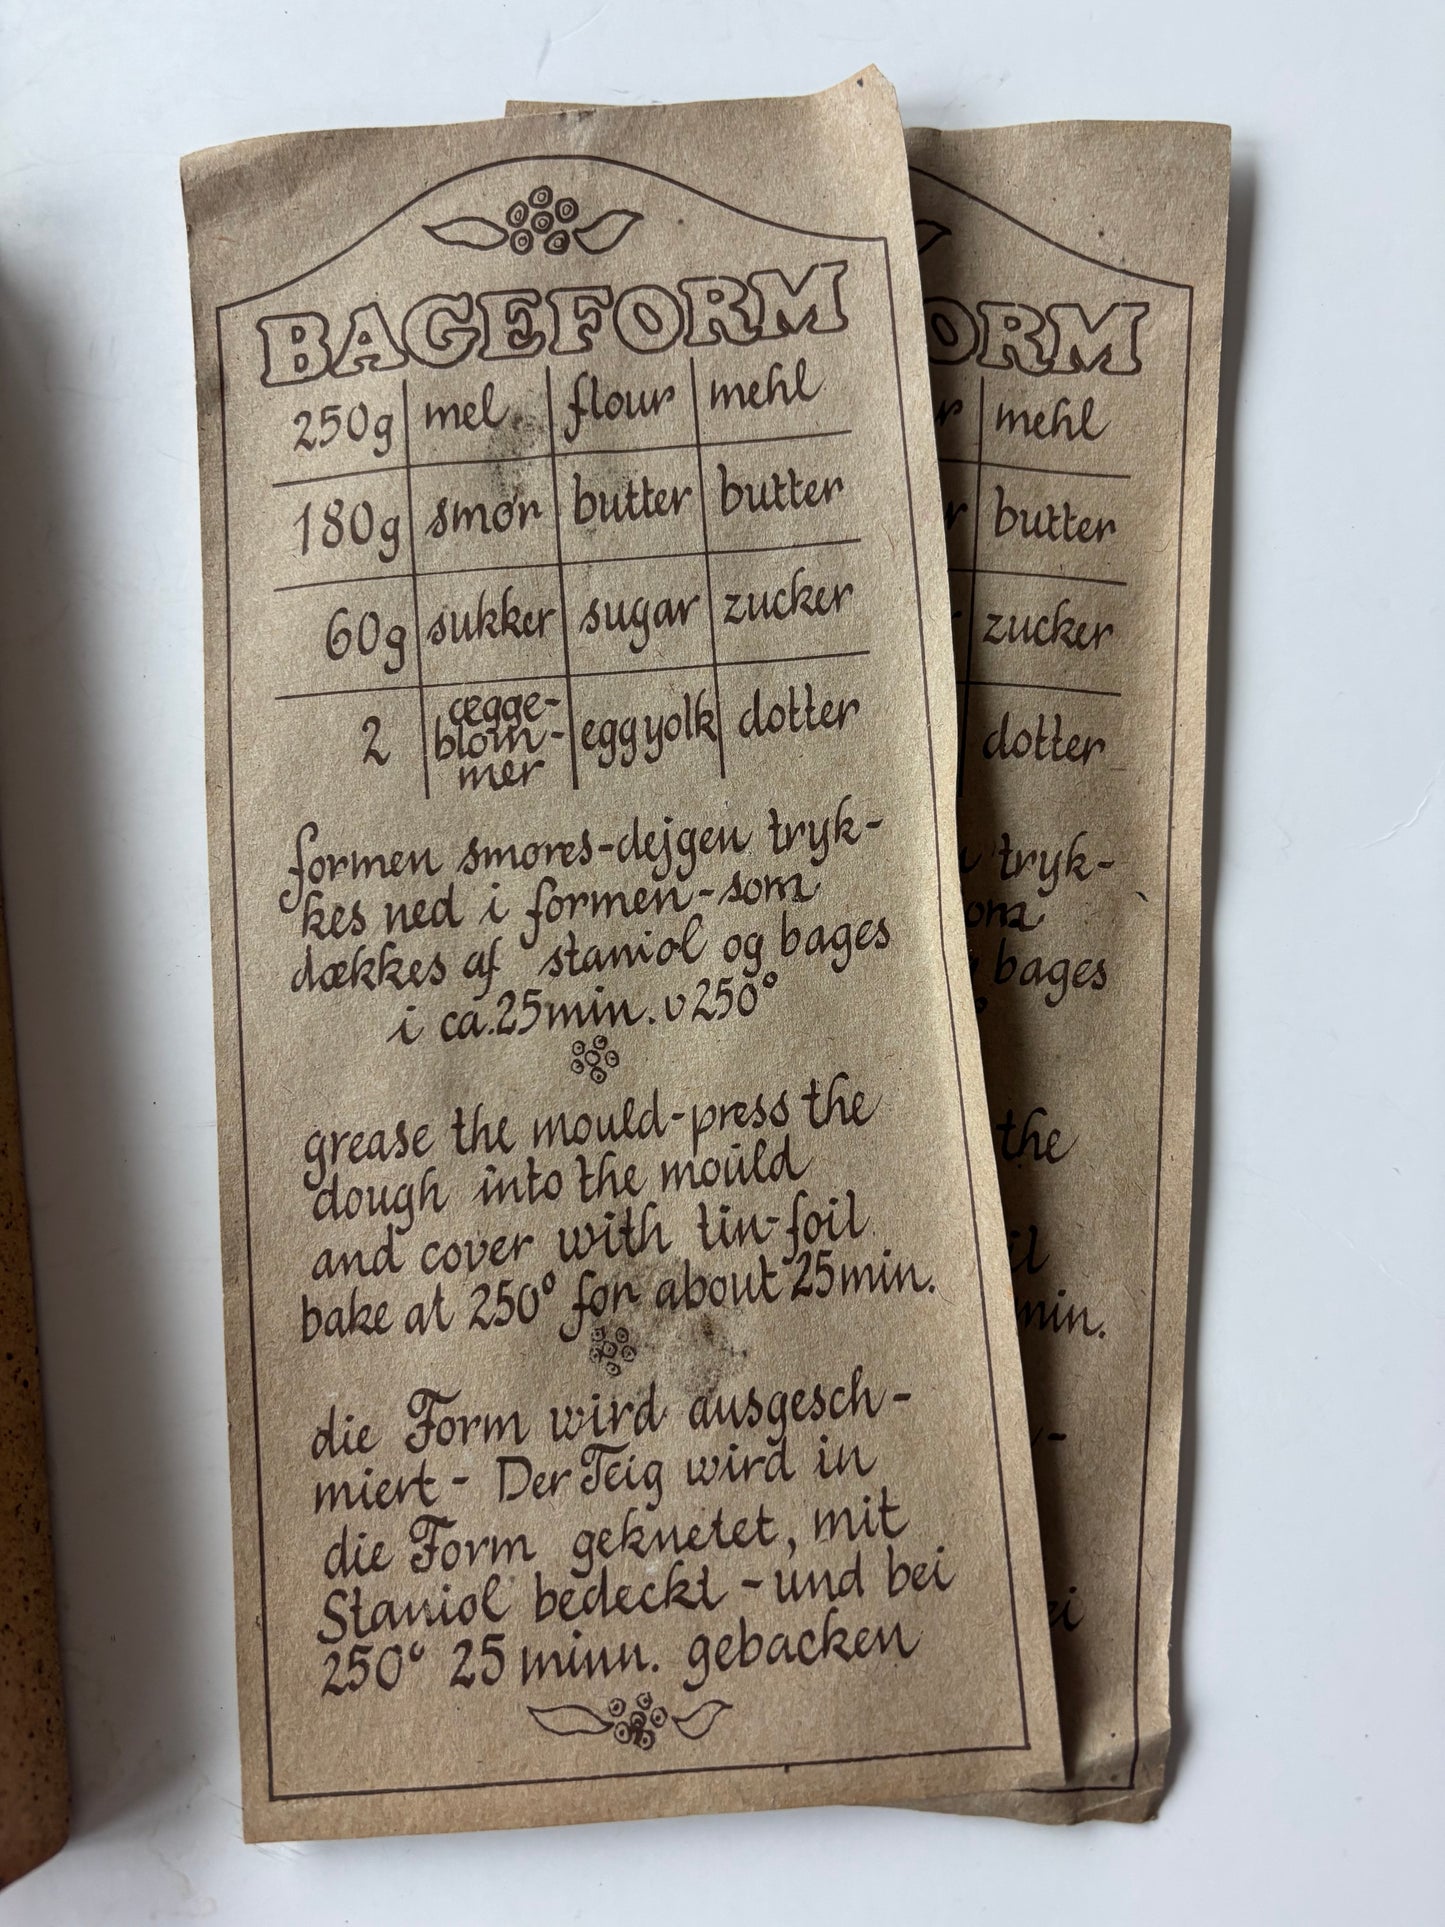 BAGEFORM
250g mel flour mehl
180g smør butter butter
60g sukker sugar zucker
2 ægge-blom-mer eggyolk dotter
formen smøres-dejgen tryk-
kes ned i formen-som
dækkes af staniol og bages
i ca.25min.v250°
grease the mould-press the
dough into the mould
and cover with tin-foil
bake at 250° for about 25min.
die Form wird ausgesch-
miert- Der Teig wird in
die Form geknetet, mit
Staniol bedeckt-und bei
250° 25 minn. gebacken
ORM
mehl
butter
zucker
dotter
tryk-
om
bages
the
il
min.
-
ei